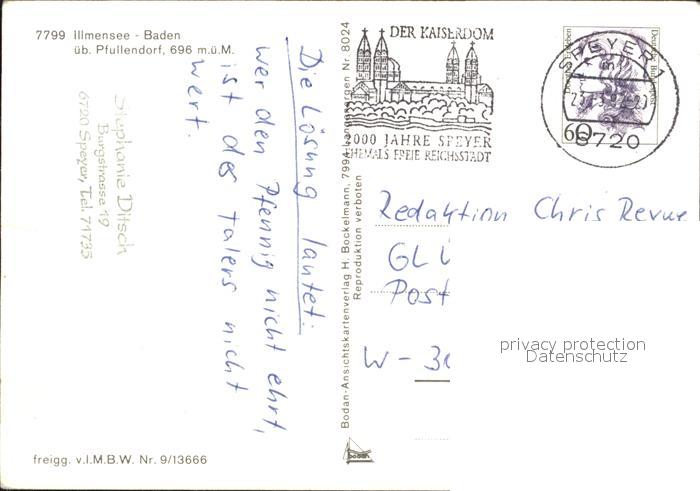 7799 Illmensee - Baden
üb. Pfullendorf, 696 m.ü.M.
Stephanie Ditsch
Burgstrasse 19
6720 Speyer, Tel. 71735
Die Lösung lautet:
wer den Pfennig nicht ehrt,
ist des Talers nicht
wert.
freigg. v.I.M.B.W. Nr. 9/13666
Bodan-Ansichtskartenverlag H. Bockelmann, 7994 Nr. 8024
Reproduktion verboten
bodan
DER KAISERDOM
2000 JAHRE SPEYER
EHEMALS FREIE REICHSSTADT
SPEYER 1
6720
Deutsche Bundespost
60
Redaktion Chris Revue
GLÜ
Post
W - 30
privacy protection
Datenschutz